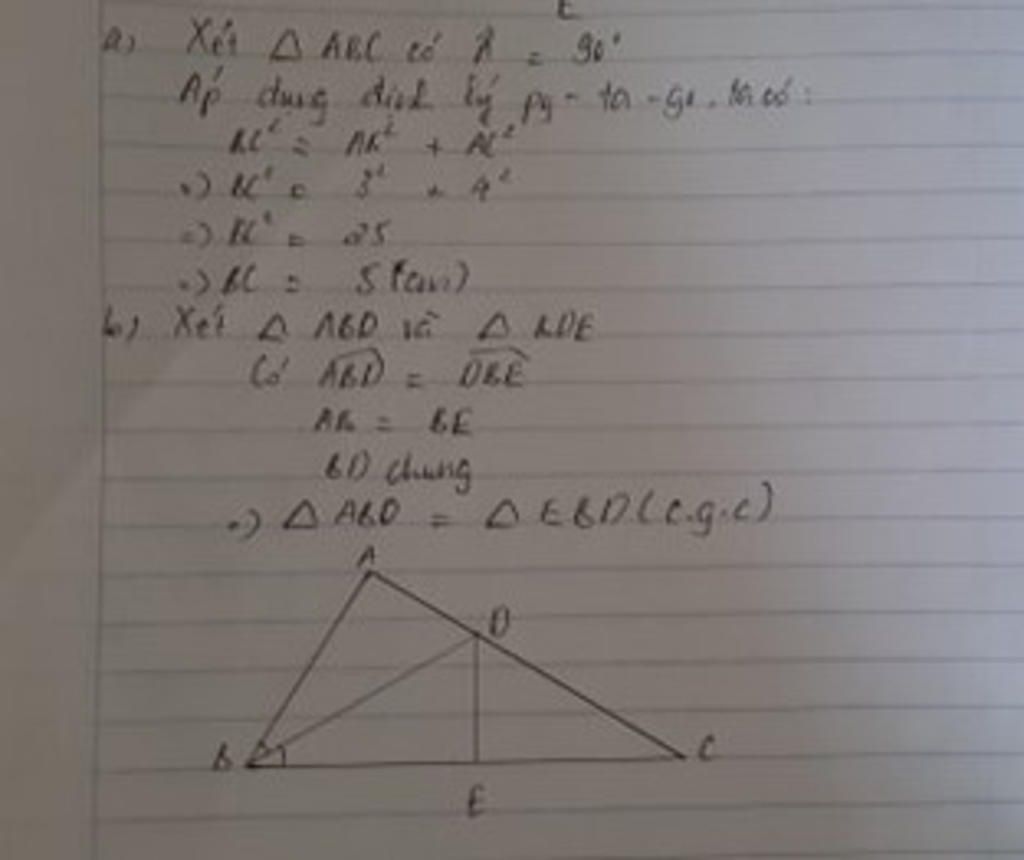 E
a) Xét △ ABC có Â = 90°
Áp dụng định lý py-ta-go, ta có:
BC² = AB² + AC²
=) BC² = 3² + 4²
=) BC² = 25
=) BC = 5 (cm)
b) Xét △ ABD và △ BDE
Có ABD = DBE
AB = BE
BD chung
=) △ ABD = △ EBD (c.g.c)
A
D
B
C
E